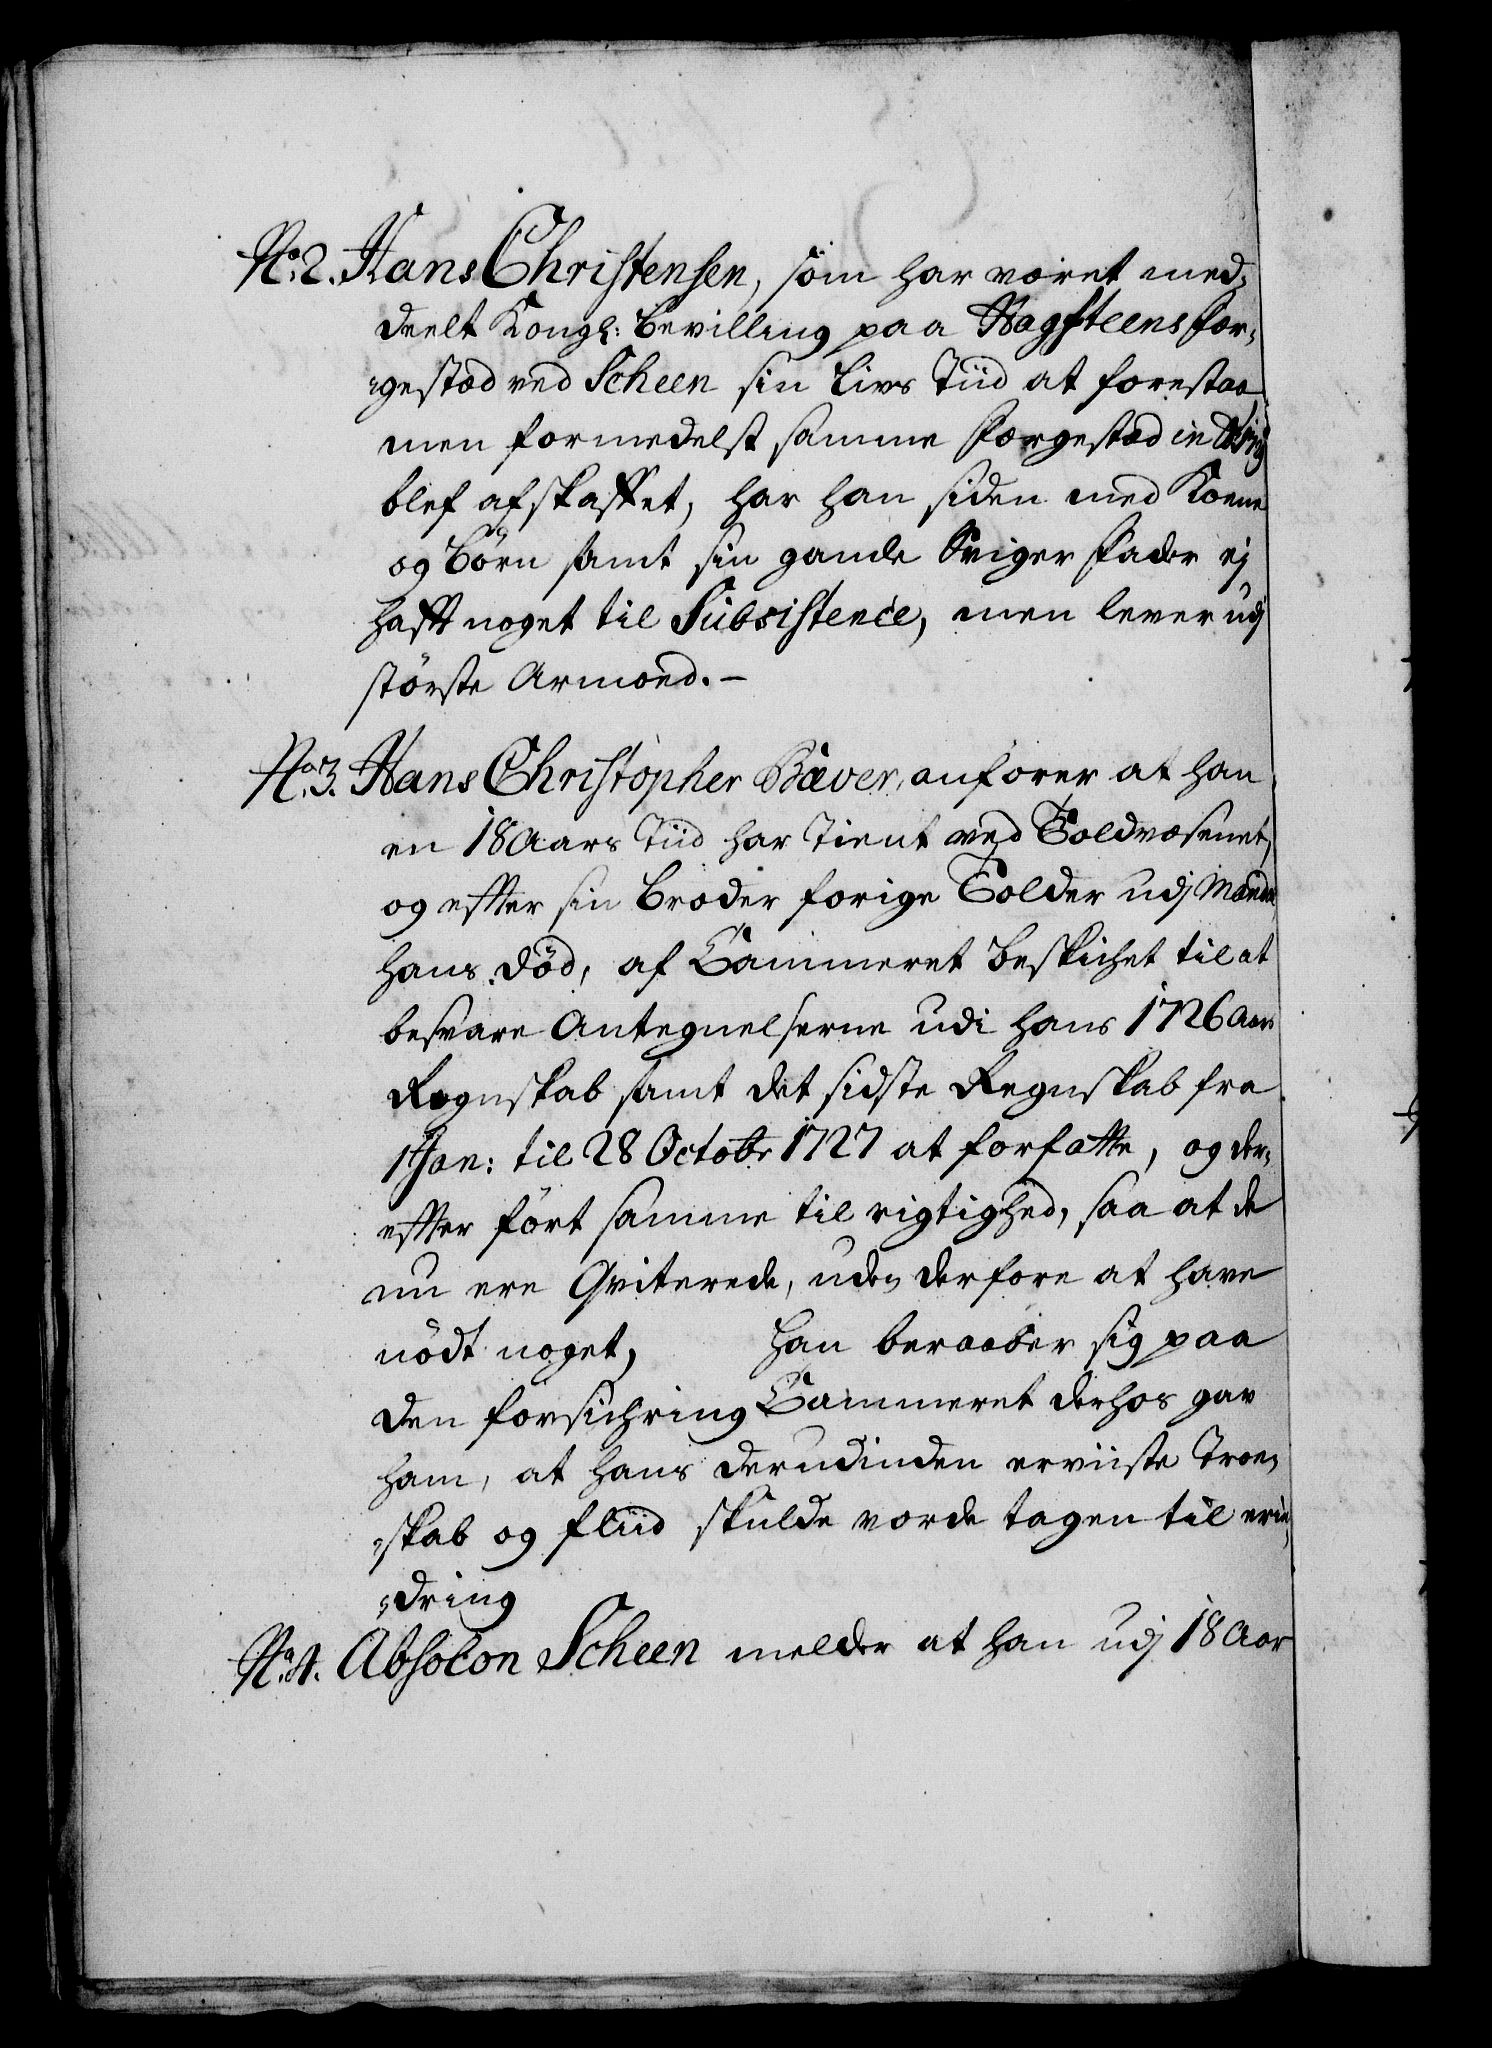 No. 2. Hans Christensen, som har været med-
deelt Kongl: bevilling paa Kragsteens fær-
-gestæd ved Scheen sin Livs Tiid at forestaa
men formedelst samme færgestæd in
blef afskaffet, har han siden med Koene
og Börn samt sin gamle Sviger fader ej
hafft noget til Subsistence, men lever udj
störste Armoed. –
No. 3. Hans Christopher Bæver, anförer at han
en 18 Aars Tiid har tient ved Toldvæsenet,
og effter sin broder forige Tolder udj
hans Död, af Cammeret beskichet til at
besvare Antegnelserne udi hans 1726 Aars
Regnskab samt det sidste Regnskab fra
1 Jan: til 28 Octobr 1727 at forfatte, og der-
effter fört samme til rigtighed, saa at de
nu ere Qviterede, uden derfore at have
nödt noget, Han beraaber sig paa
den forsichring Cammeret derhos gav
ham, at hans derudinden erviiste Troe-
-skab og fliid skulde vorde tagen til erin-
-dring
No. 4. Absolon Scheen melder at han udj 18 Aar